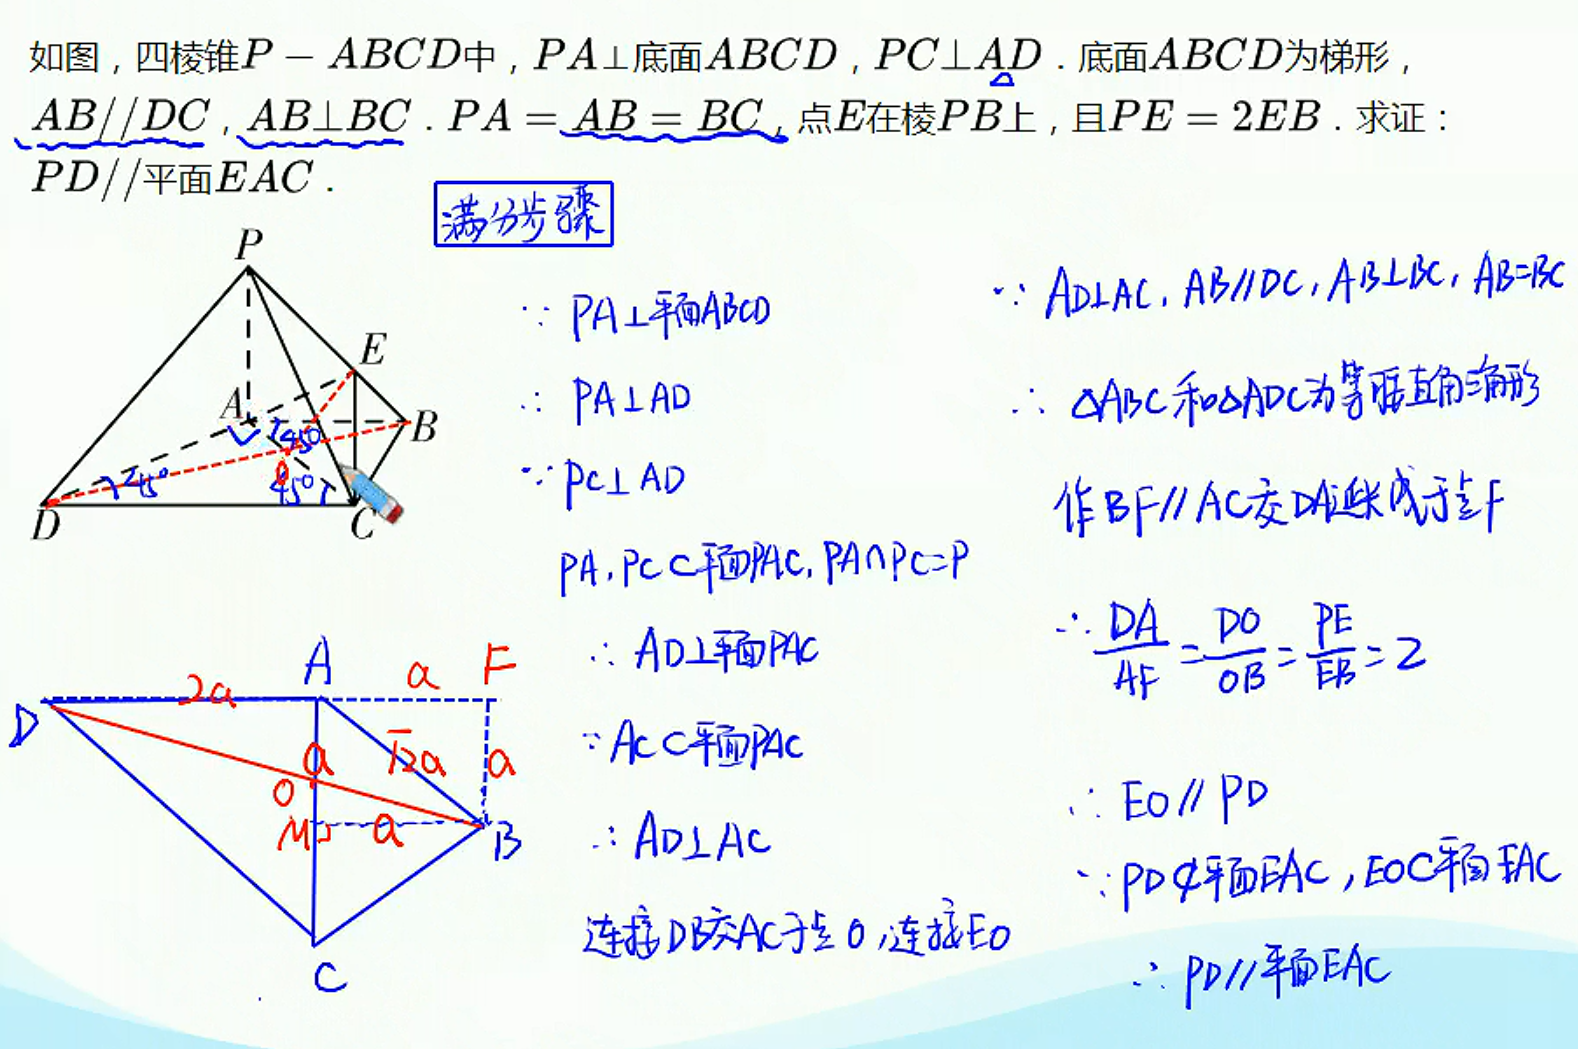 如图，四棱锥P－ABCD中，PA⊥底面ABCD，PC⊥AD．底面ABCD为梯形，
AB//DC，AB⊥BC．PA＝AB＝BC，点E在棱PB上，且PE＝2EB．求证：
PD//平面EAC．
满分步骤
P
E
A
B
D
C
45°
45°
45°
O
∵ PA⊥平面ABCD
∴ PA⊥AD
∵ PC⊥AD
PA，PC⊂平面PAC，PA∩PC=P
∴ AD⊥平面PAC
∵ AC⊂平面PAC
∴ AD⊥AC
连接DB交AC于点O，连接EO
∵ AD⊥AC，AB//DC，AB⊥BC，AB=BC
∴ △ABC和△ADC为等腰直角三角形
作BF//AC交DA延长线于点F
∴ DA/AF = DO/OB = PE/EB = 2
∴ EO//PD
∵ PD⊄平面EAC，EO⊂平面EAC
∴ PD//平面EAC
A
F
2a
a
D
a
√2a
a
O
M
a
B
C